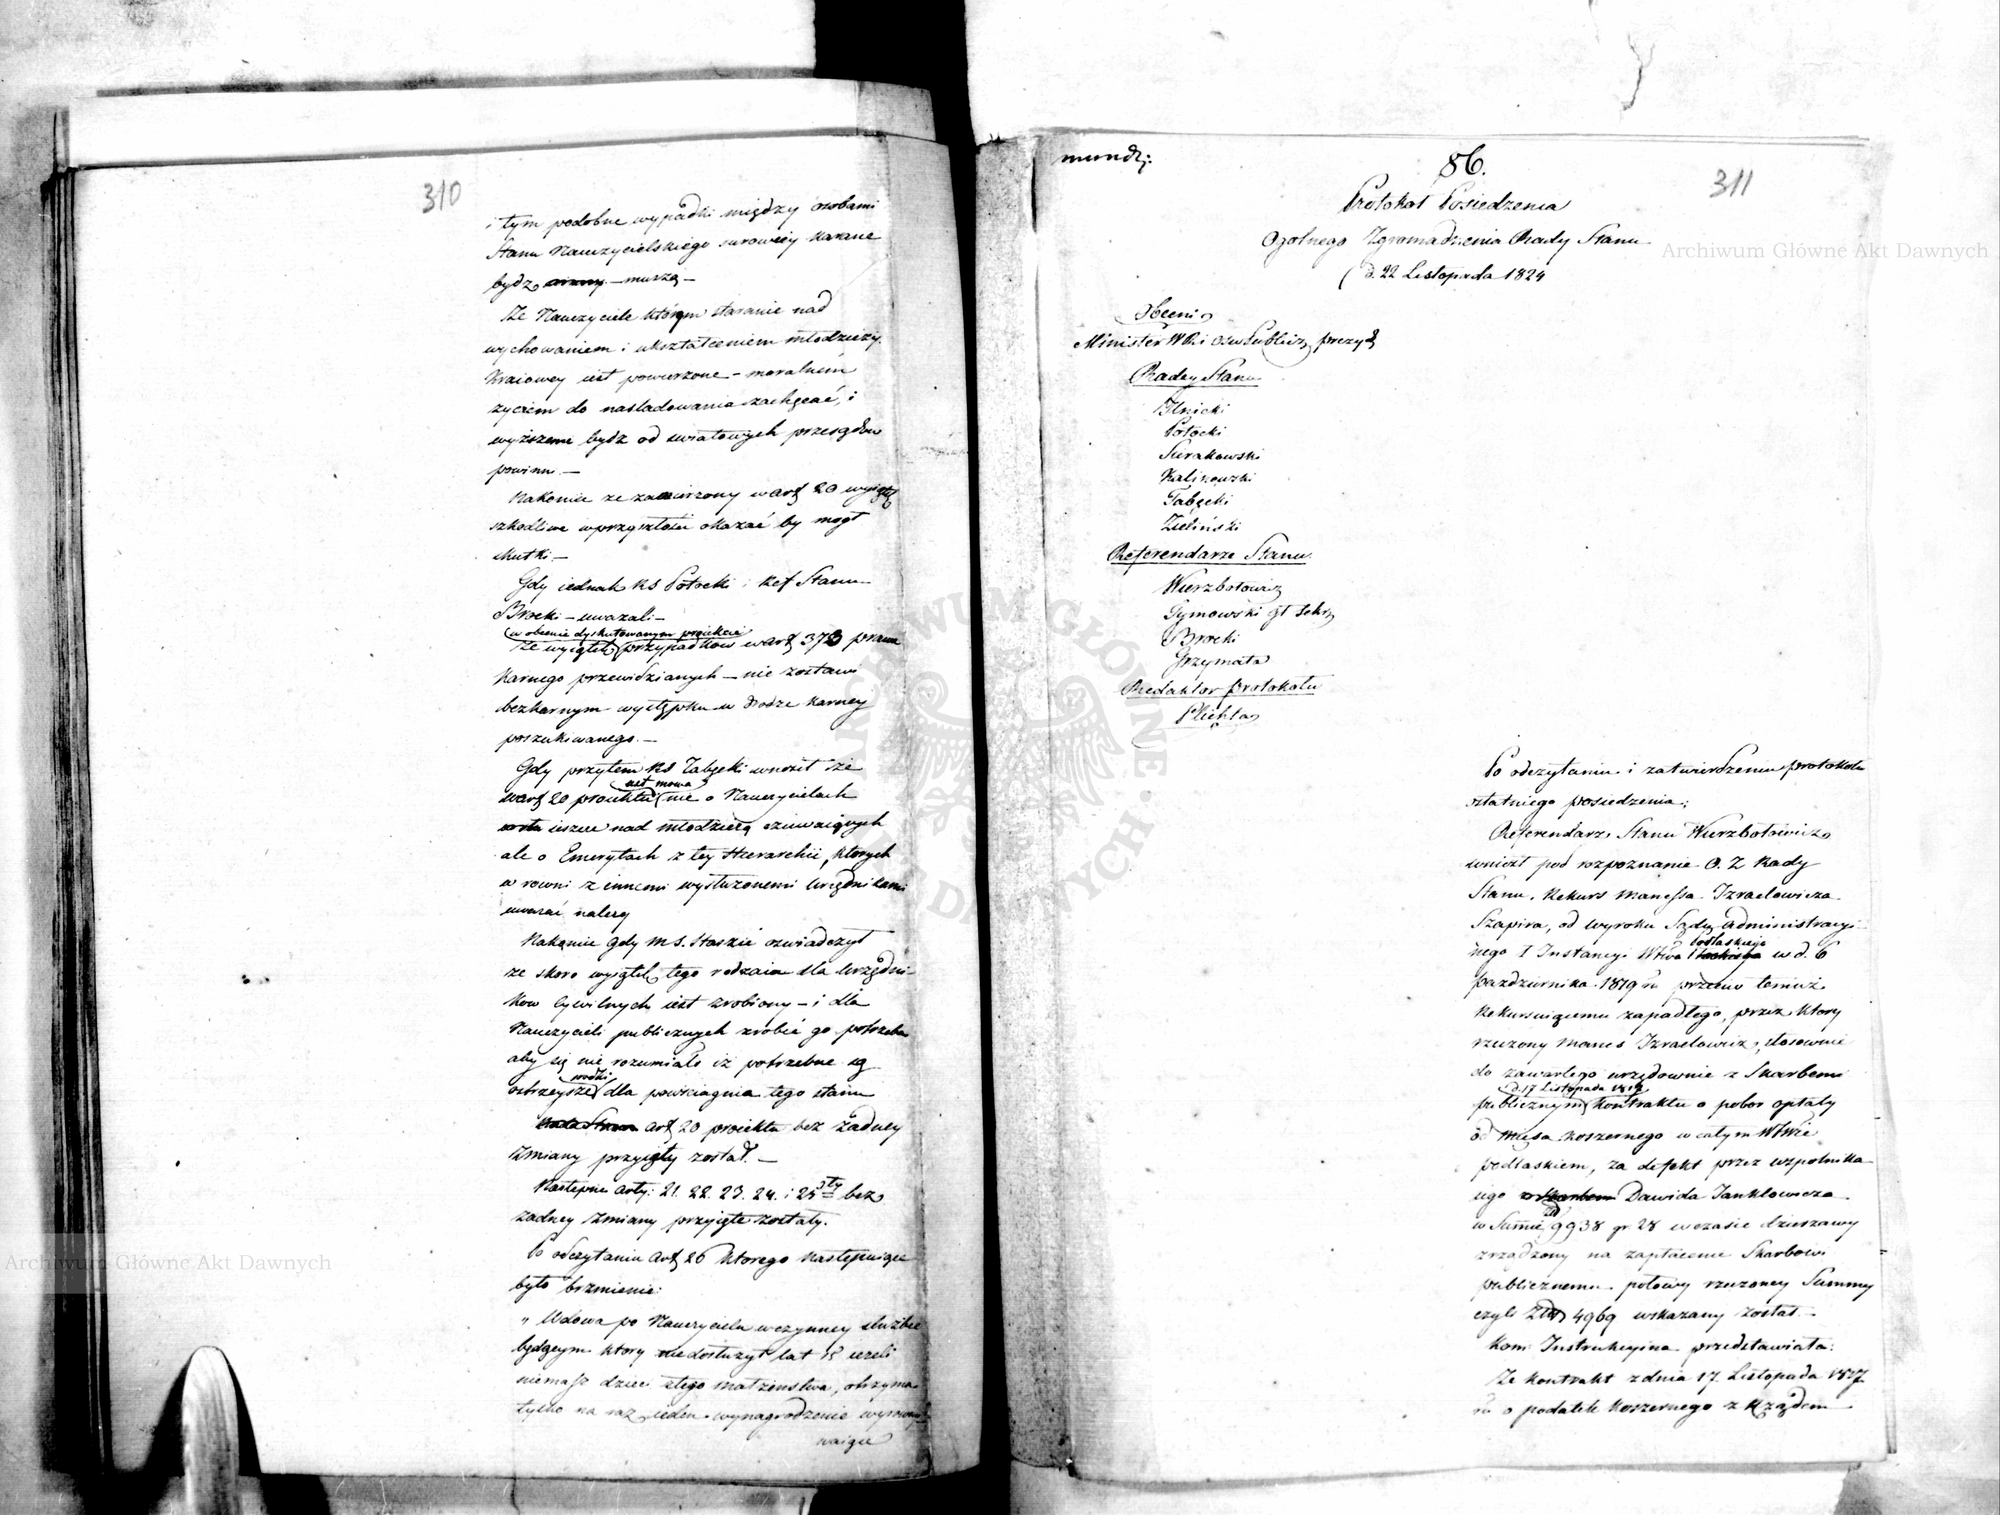 310
i tym podobne wypadki między osobami
Stanu Nauczycielskiego surowiéy karane
bydz muszą –
Ze Nauczyciele którym staranie nad
wychowaniem i ukształceniem młodzieży
Kraiowey iest powierzone – moralnem
życiem do nasladowania zachęcać, i
wyższemi bydz od swiatowych przesądow
powinni –
Nakoniec ze zamierzony w art 20 wyiątek
szkodliwe w przyszłości okazać by mogł
skutki –
Gdy iednak RS Potocki i Ref Stanu
Brocki – uwazali –
w obecnie dyskutowanym proiekcie
Ze wyiątek przypadkow w art 373 prawa
Karnego przewidzianych – nie zostawi
bezkarnym występku w drodze karney
poszukiwanego. –
Gdy przytem RS Tabęcki wnosił że
iest mowa
w art 20 proiektu nie o Nauczycielach
ieszcze nad młodzieżą czuwaiących
ale o Emerytach z tey Hierarchii, których
w rowni z innemi wysłużonemi Urzędnikami
uważać należy
Nakoniec gdy M S. Staszic oświadczył
ze skoro wyiątek tego rodzaiu dla Urzędni-
kow Cywilnych iest zrobiony – i dla
Nauczycieli publicznych zrobić go potrzeba
aby się nie rozumiało iż potrzebne są
srodki
ostrzeysze dla powściągnienia tego stanu
art 20 proiektu bez żadney
Zmiany przyięty został. –
Następnie Arty: 21. 22. 23. 24. i 25ty bez
żadney Zmiany przyięte zostały.
Po odczytaniu Art 26 ktorego następuiące
było brzmienie:
„ Wdowa po Nauczycielu w czynney służbie
będącym ktory niedosłużył lat 15 ieżeli
niemasz dzieci z tego małżeństwa, otrzyma
tylko na raz ieden wynagrodzenie wyrowny
waiące
mundz:
86.
311
Protokół Posiedzenia
Ogolnego Zgromadzenia Rady Stanu
d. 22 Listopada 1824
Obecni
Minister WR i Osw Publiczn prezyd
Radcy Stanu
Ilnicki
Potocki
Surakowski
Kalinowski
Tabęcki
Zieliński
Referendarze Stanu
Wierzbołowicz
Tymowski zt Sekr
Brocki
Grzymała
Redaktor protokołu
Plichta
Po odczytaniu i zatwierdzeniu protokołu
ostatniego posiedzenia;
Referendarz Stanu Wierzbołowicz
wniósł pod rozpoznanie O. Z Rady
Stanu, Rekurs Manessa Izraelowicza
Szapira, od wyroku Sądu administracyi-
nego I Instancyi Wtwa
Podlaskiego
w d. 6
pazdziernika 1819 r. przeciw temuż
Rekursuiącemu zapadłego, przez ktory
rzeczony Manes Izraelowicz, stosownie
do zawartego urzędownie z Skarbem
d. 17 Listopada 1817
publicznym kontraktu o pobor opłaty
od mięsa koszernego w całym Wtwie
podlaskiem, za defekt przez wspolnika
iego Dawida Janklowicza
w Summie Zł 9938 gr 28 w czasie dzierzawy
zrządzony na zapłacenie Skarbowi
publicznemu połowy rzeczoney Summy
czyli Złł 4969 wskazany został. –
Kom Instrukcyina przedstawiała:
Ze Kontrakt z dnia 17. Listopada 1817
r. o podatek koszernego z Rządem
Archiwum Główne Akt Dawnych
Archiwum Główne Akt Dawnych
ARCHIWUM GŁÓWNE AKT DAWNYCH